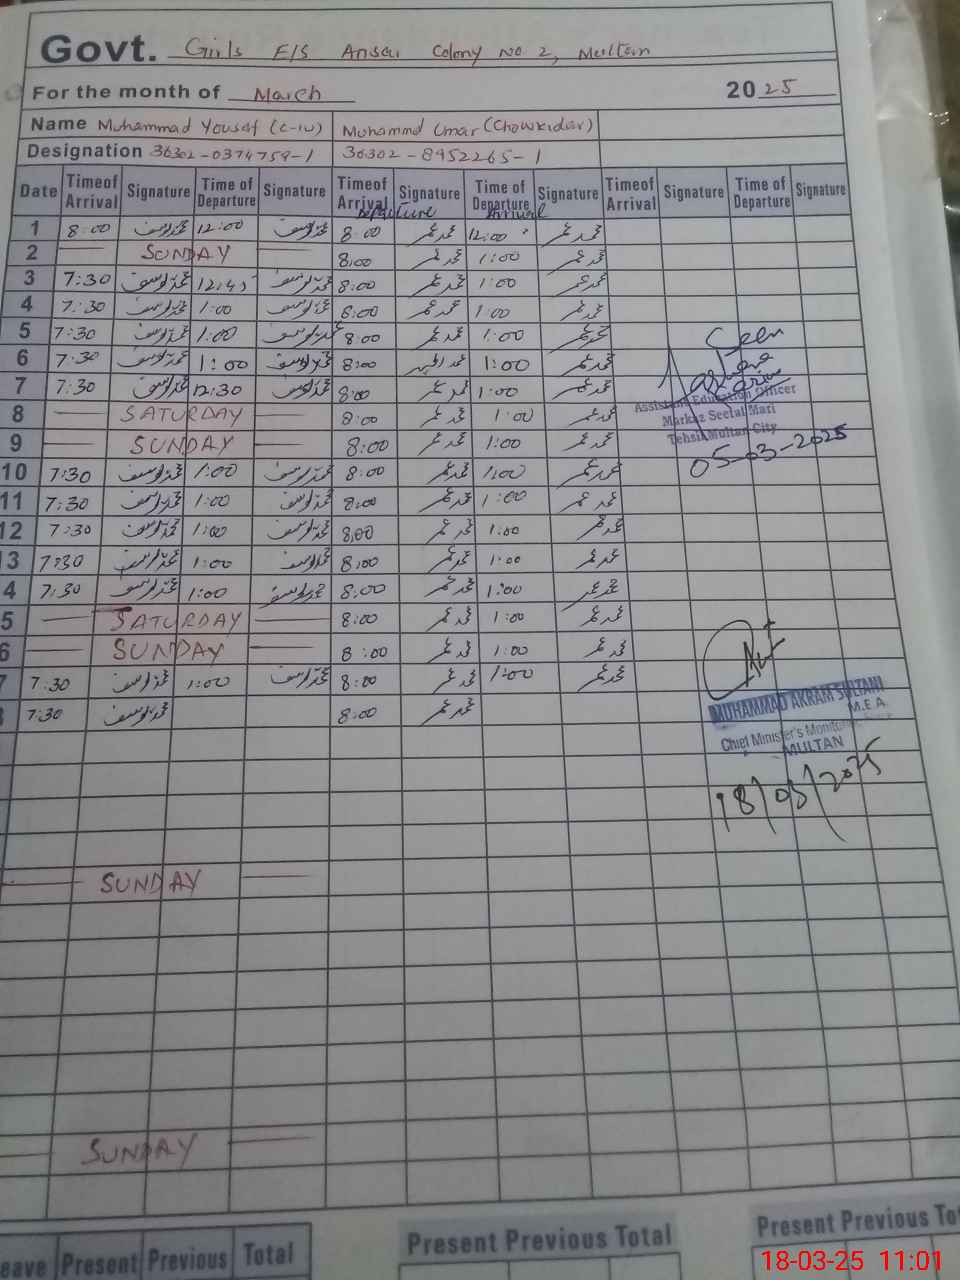 Govt. Girls E/S Ansar Colony No 2, Multan
For the month of March 2025
Name Muhammad Yousaf (C-IV) Muhammad Umar (Chowkidar)
Designation 36302-0374759-1 36302-8952265-1
Date Time of Arrival Signature Time of Departure Signature Time of Arrival Departure Signature Time of Departure Arrival Signature Time of Arrival Signature Time of Departure Signature
1 8:00 محمد یوسف 12:00 محمد یوسف 8:00 محمد عمر 12:00 محمد عمر
2 SUNDAY 8:00 محمد عمر 1:00 محمد عمر
3 7:30 محمد یوسف 12:45 محمد یوسف 8:00 محمد عمر 1:00 محمد عمر
4 7:30 محمد یوسف 1:00 محمد یوسف 8:00 محمد عمر 1:00 محمد عمر
5 7:30 محمد یوسف 1:00 محمد یوسف 8:00 محمد عمر 1:00 محمد عمر
6 7:30 محمد یوسف 1:00 محمد یوسف 8:00 1:00 محمد عمر
7 7:30 محمد یوسف 12:30 محمد یوسف 8:00 محمد عمر 1:00 محمد عمر
8 SATURDAY 8:00 محمد عمر 1:00 محمد عمر
9 SUNDAY 8:00 محمد عمر 1:00 محمد عمر
10 7:30 محمد یوسف 1:00 محمد یوسف 8:00 محمد عمر 1:00 محمد عمر
11 7:30 محمد یوسف 1:00 محمد یوسف 8:00 محمد عمر 1:00 محمد عمر
12 7:30 محمد یوسف 1:00 محمد یوسف 8:00 محمد عمر 1:00 محمد عمر
3 7:30 محمد یوسف 1:00 محمد یوسف 8:00 محمد عمر 1:00 محمد عمر
4 7:30 محمد یوسف 1:00 محمد یوسف 8:00 محمد عمر 1:00 محمد عمر
5 SATURDAY 8:00 محمد عمر 1:00 محمد عمر
6 SUNDAY 8:00 محمد عمر 1:00 محمد عمر
7 7:30 محمد یوسف 1:00 محمد یوسف 8:00 محمد عمر 1:00 محمد عمر
7:30 محمد یوسف 8:00 محمد عمر
Seen
Assistant Education Officer
Markaz Seetal Mari
Tehsil Multan City
05-03-2025
MUHAMMAD AKRAM SULTANI
M.E.A.
Chief Minister's Monitoring
MULTAN
18/03/2025
SUNDAY
SUNDAY
eave Present Previous Total
Present Previous Total
Present Previous To
18-03-25 11:01